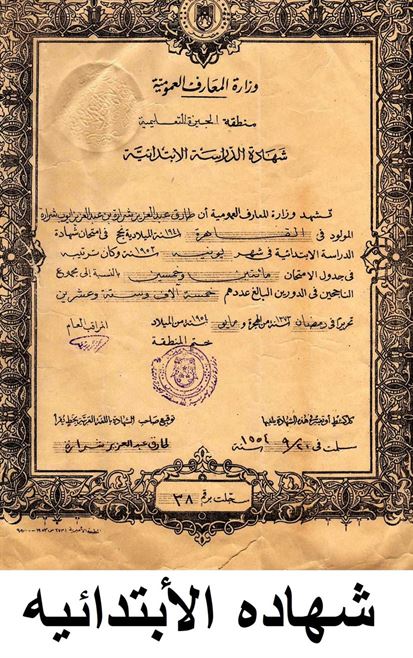 وزارة المعارف العمومية
منطقة الجيزة التعليمية
شهادة الدراسة الابتدائية
تشهد وزارة المعارف العمومية أن طارق عبد العزيز شرارة بن عبد العزيز أيوب شرارة
المولود فى القاهرة سنة الميلادية نجح فى امتحان شهادة
الدراسة الابتدائية فى شهر يونيه سنة ١٩٥٣ وكان ترتيبه
فى جدول الامتحان مائتين وخمسين بالنسبة إلى مجموع
الناجحين فى الدورين البالغ عددهم خمسة آلاف وستة وعشرين
تحريرًا فى رمضان سنة ١٣٧٣ من الهجرة و مايو سنة ١٩٥٤ من الميلاد
المراقب العام
ختم المنطقة
كل كشط أو تغيير فى هذه الشهادة يلغيها
توقيع صاحب الشهادة باللغة العربية بخط يقرأ
سلمت فى ٩/٢٠ سنة ١٩٥٤
طارق عبد العزيز شرارة
سجلت برقم ٣٨
شهاده الأبتدائيه